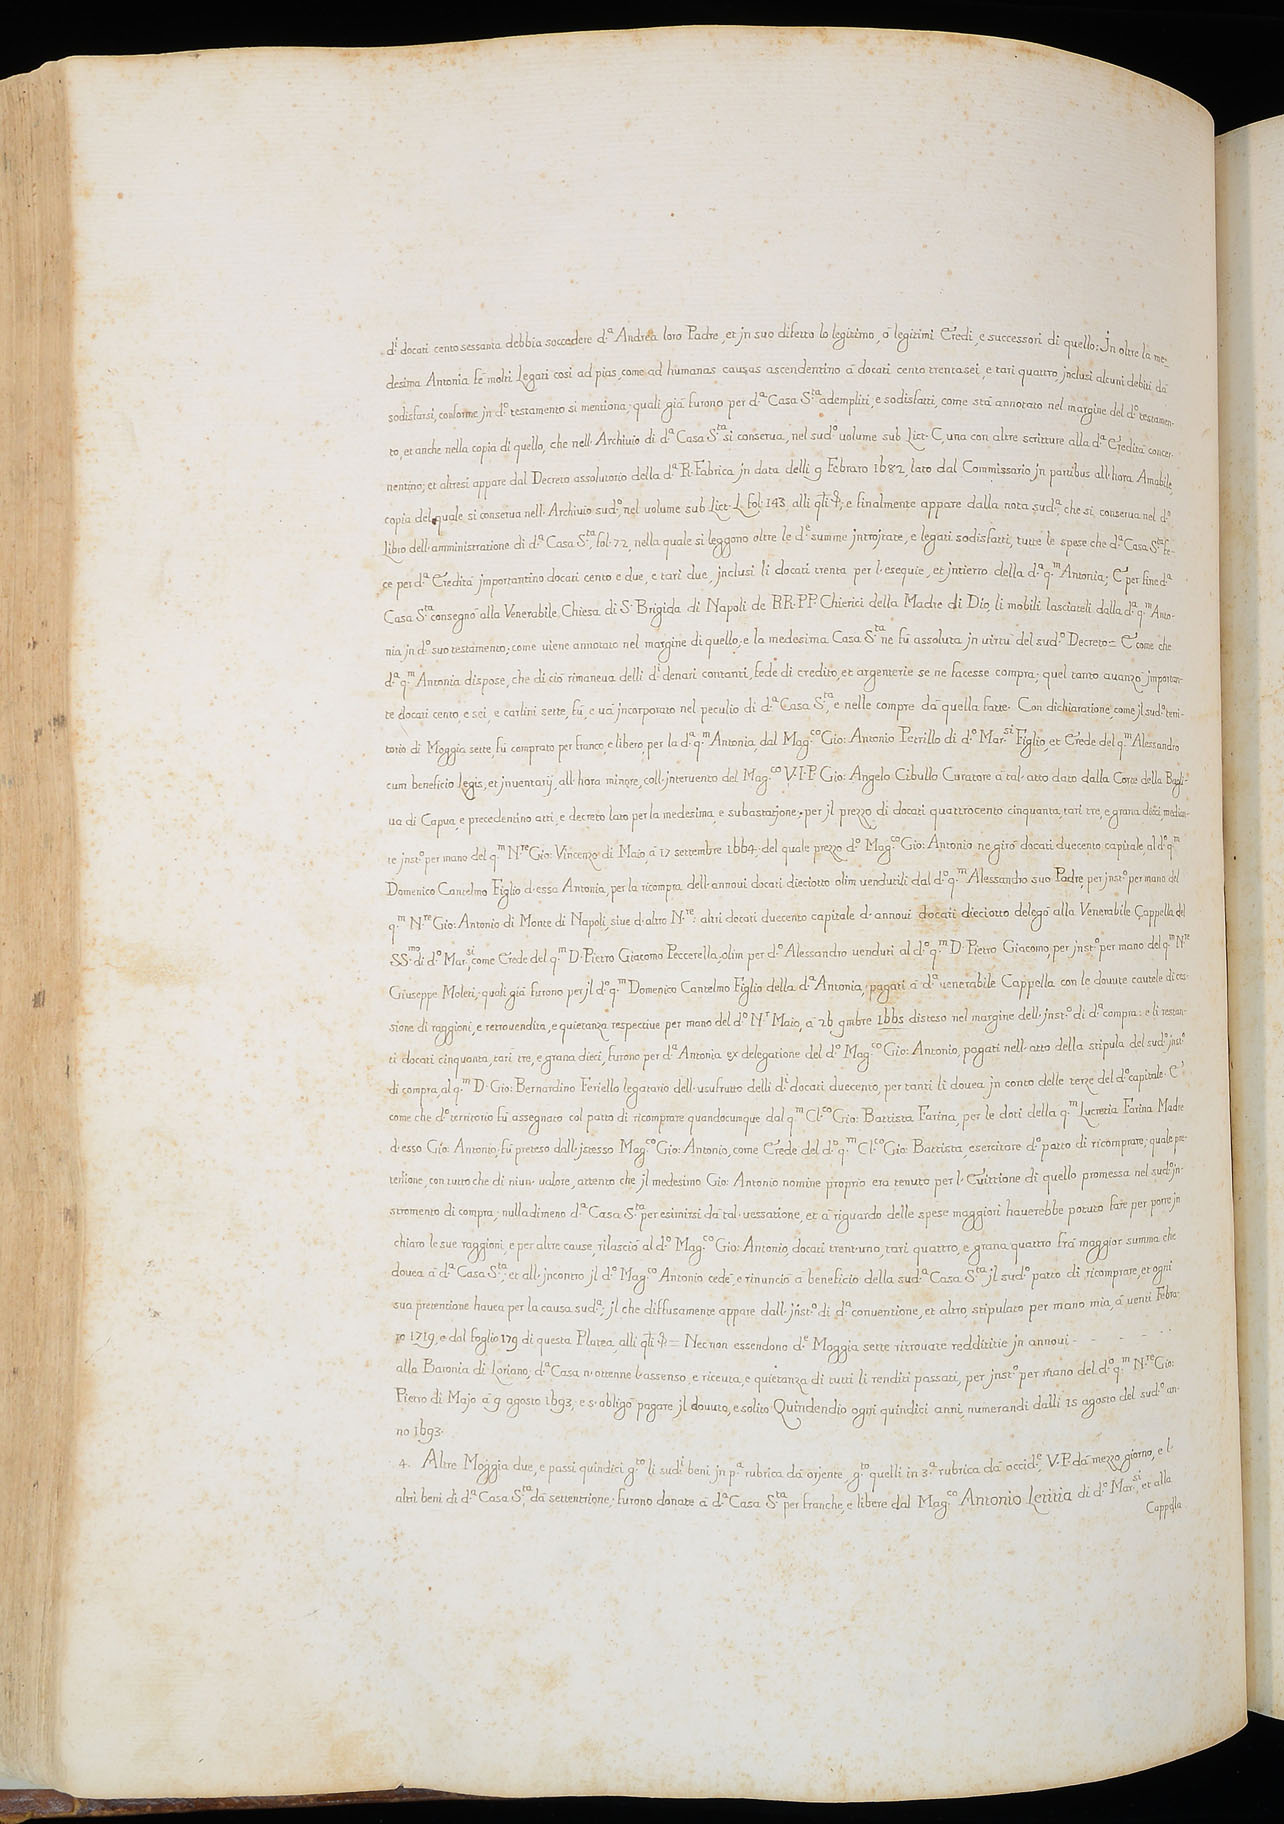 d.ⁱ docati cento sessanta debbia soccedere d.ᵃ Andrea loro Padre, et jn suo difetto lo legitimo, ò legitimi Eredi, e successori di quello: Jn oltre la me-
desima Antonia fè molti Legati così ad pias, come ad humanas causas ascendentino à docati cento trentasei, e tarì quattro, jnclusi alcuni debiti da
sodisfarsi, conforme jn d.º testamento si mentiona; quali già furono per d.ᵃ Casa S.ᵗᵃ adempliti, e sodisfatti, come stà annotato nel margine del d.º testamen-
to, et anche nella copia di quello, che nell' Archiuio di d.ᵃ Casa S.ᵗᵃ si conserua, nel sud.º uolume sub Lict. C, una con altre scritture alla d.ᵃ Eredità concer-
nentino; et altresì appare dal Decreto assolutorio della d.ᵃ R. Fabrica jn data delli 9 Febraro 1682, lato dal Commissario jn partibus all' hora Amabile,
copia del quale si conserua nell' Archiuio sud.º, nel uolume sub Lict. L fol. 143, alli q̃li; e finalmente appare dalla nota sud.ᵃ, che si conserua nel d.º
Libro dell' amministratione di d.ᵃ Casa S.ᵗᵃ, fol. 72, nella quale si leggono oltre le d.ᵉ summe jntrojtate, e legati sodisfatti, tutte le spese che d.ᵃ Casa S.ᵗᵃ fe-
ce per d.ᵃ Eredità jmportantino docati cento e due, e tarì due, jnclusi li docati trenta per l' esequie, et jntierro della d.ᵃ q.ᵐ Antonia; E per fine d.ᵃ
Casa S.ᵗᵃ consegnò alla Venerabile Chiesa di S. Brigida di Napoli de RR. PP. Chierici della Madre di Dio, li mobili lasciateli dalla d.ᵃ q.ᵐ Anto-
nia jn d.º suo testamento; come uiene annotato nel margine di quello, e la medesima Casa S.ᵗᵃ ne fù assoluta jn uirtù del sud.º Decreto = E come che
d.ᵃ q.ᵐ Antonia dispose, che di ciò rimaneua delli d.ⁱ denari contanti, fede di credito, et argenterie se ne facesse compra; quel tanto auanzò jmportan-
te docati cento, e sei, e carlini sette, fù, e uà jncorporato nel peculio di d.ᵃ Casa S.ᵗᵃ, e nelle compre da quella fatte. Con dichiaratione, come jl sud.º teri-
torio di Moggia sette, fù comprato per franco, e libero, per la d.ᵃ q.ᵐ Antonia, dal Mag.ᶜᵒ Gio: Antonio Petrillo di d.º Mar.ˢⁱ Figlio, et Erede del q.ᵐ Alessandro
cum beneficio legis, et jnuentarij, all' hora minore, coll' jnteruento del Mag.ᶜᵒ V.I.P. Gio: Angelo Cibullo Curatore à tal' atto dato dalla Corte della Bagli-
ua di Capua, e precedentino atti, e decreto lato per la medesima, e subastatione, per jl prezzo di docati quattrocento cinquanta, tarì tre, e grana dieci, median-
te jnst.º per mano del q.ᵐ N.ʳᵉ Gio: Vincenzo di Maio, à 17 settembre 1664. del quale prezzo d.º Mag.ᶜᵒ Gio: Antonio ne girò docati duecento capitale, al d.º q.ᵐ
Domenico Cantelmo Figlio d' essa Antonia, per la ricompra dell' annoui docati dieciotto olim uendutili dal d.º q.ᵐ Alessandro suo Padre, per jnst.º per mano del
q.ᵐ N.ʳᵉ Gio: Antonio di Monte di Napoli, siue d' altro N.ʳᵉ: altri docati duecento capitale d' annoui docati dieciotto delegò alla Venerabile Cappella del
SS.ᵐᵒ di d.º Mar.ˢⁱ, come Erede del q.ᵐ D. Pietro Giacomo Peccerella, olim per d.º Alessandro uenduti al d.º q.ᵐ D. Pietro Giacomo, per jnst.º per mano del q.ᵐ N.ʳᵉ
Giuseppe Moleti; quali già furono per jl d.º q.ᵐ Domenico Cantelmo Figlio della d.ᵃ Antonia, pagati à d.ᵃ uenerabile Cappella con le douute cautele di ces-
sione di raggioni, e retrouendita, e quietanza respectiue per mano del d.º N.ʳ Maio, à 26 9mbre 1665 disteso nel margine dell' jnst.º di d.ᵃ compra: e li restan-
ti docati cinquanta, tarì tre, e grana dieci, furono per d.ᵃ Antonia ex delegatione del d.º Mag.ᶜᵒ Gio: Antonio, pagati nell' atto della stipula del sud.º jnst.º
di compra, al q.ᵐ D. Gio: Bernardino Feriello legatario dell' usufrutto delli d.ⁱ docati duecento, per tanti li douea jn conto delle terze del d.º capitale. E
come che d.º territorio fù assegnato col patto di ricomprare quandocumque dal q.ᵐ Cl.ᶜᵒ Gio: Battista Farina, per le doti della q.ᵐ Lucretia Farina Madre
d' esso Gio: Antonio, fù preteso dall' jstesso Mag.ᶜᵒ Gio: Antonio, come Erede del d.º q.ᵐ Cl.ᶜᵒ Gio: Battista, esercitare d.º patto di ricomprare; quale pre-
tensione, con tutto che di niun' ualore, attento che jl medesimo Gio: Antonio nomine proprio era tenuto per l' Euittione di quello promessa nel sud.º jn-
stromento di compra; nulladimeno d.ᵃ Casa S.ᵗᵃ per esimirsi da tal' uessatione, et à riguardo delle spese maggiori hauerebbe potuto fare per porre jn
chiaro le sue raggioni, e per altre cause, rilasciò al d.º Mag.ᶜᵒ Gio: Antonio, docati trent' uno, tarì quattro, e grana quattro frà maggior summa che
douea à d.ᵃ Casa S.ᵗᵃ; et all' jncontro jl d.º Mag.ᶜᵒ Antonio cedè, e rinunciò à beneficio della sud.ᵃ Casa S.ᵗᵃ jl sud.º patto di ricomprare, et ogni
sua pretentione hauea per la causa sud.ᵃ; jl che diffusamente appare dall' jnst.º di d.ᵃ conuentione, et altro, stipulato per mano mia, à uenti Febra-
ro 1719, e dal foglio 179 di questa Platea, alli q̃li = Necnon essendono d.ᵉ Moggia sette ritrouate reddititie jn annoui - - - - -
alla Baronia di Loriano, d.ᵃ Casa n' ottenne l' assenso, e riceuta, e quietanza di tutti li renditi passati, per jnst.º per mano del d.º q.ᵐ N.ʳᵉ Gio:
Pietro di Majo à 9 agosto 1693, e s' obligò pagare jl douuto, e solito Quindendio ogni quindici anni, numerandi dalli 15 agosto del sud.º an-
no 1693.
4. Altre Moggia due, e passi quindici g.ᵗᵒ li sud.ⁱ beni jn p.ᵃ rubrica da oriente, g.ᵗᵒ quelli in 3.ᵃ rubrica da occid.ᵉ, V.P. da mezzo giorno, e l'
altri beni di d.ᵃ Casa S.ᵗᵃ da settentrione; furono donate à d.ᵃ Casa S.ᵗᵃ per franche, e libere dal Mag.ᶜᵒ Antonio Letitia di d.º Mar.ˢⁱ, et alla
Cappella